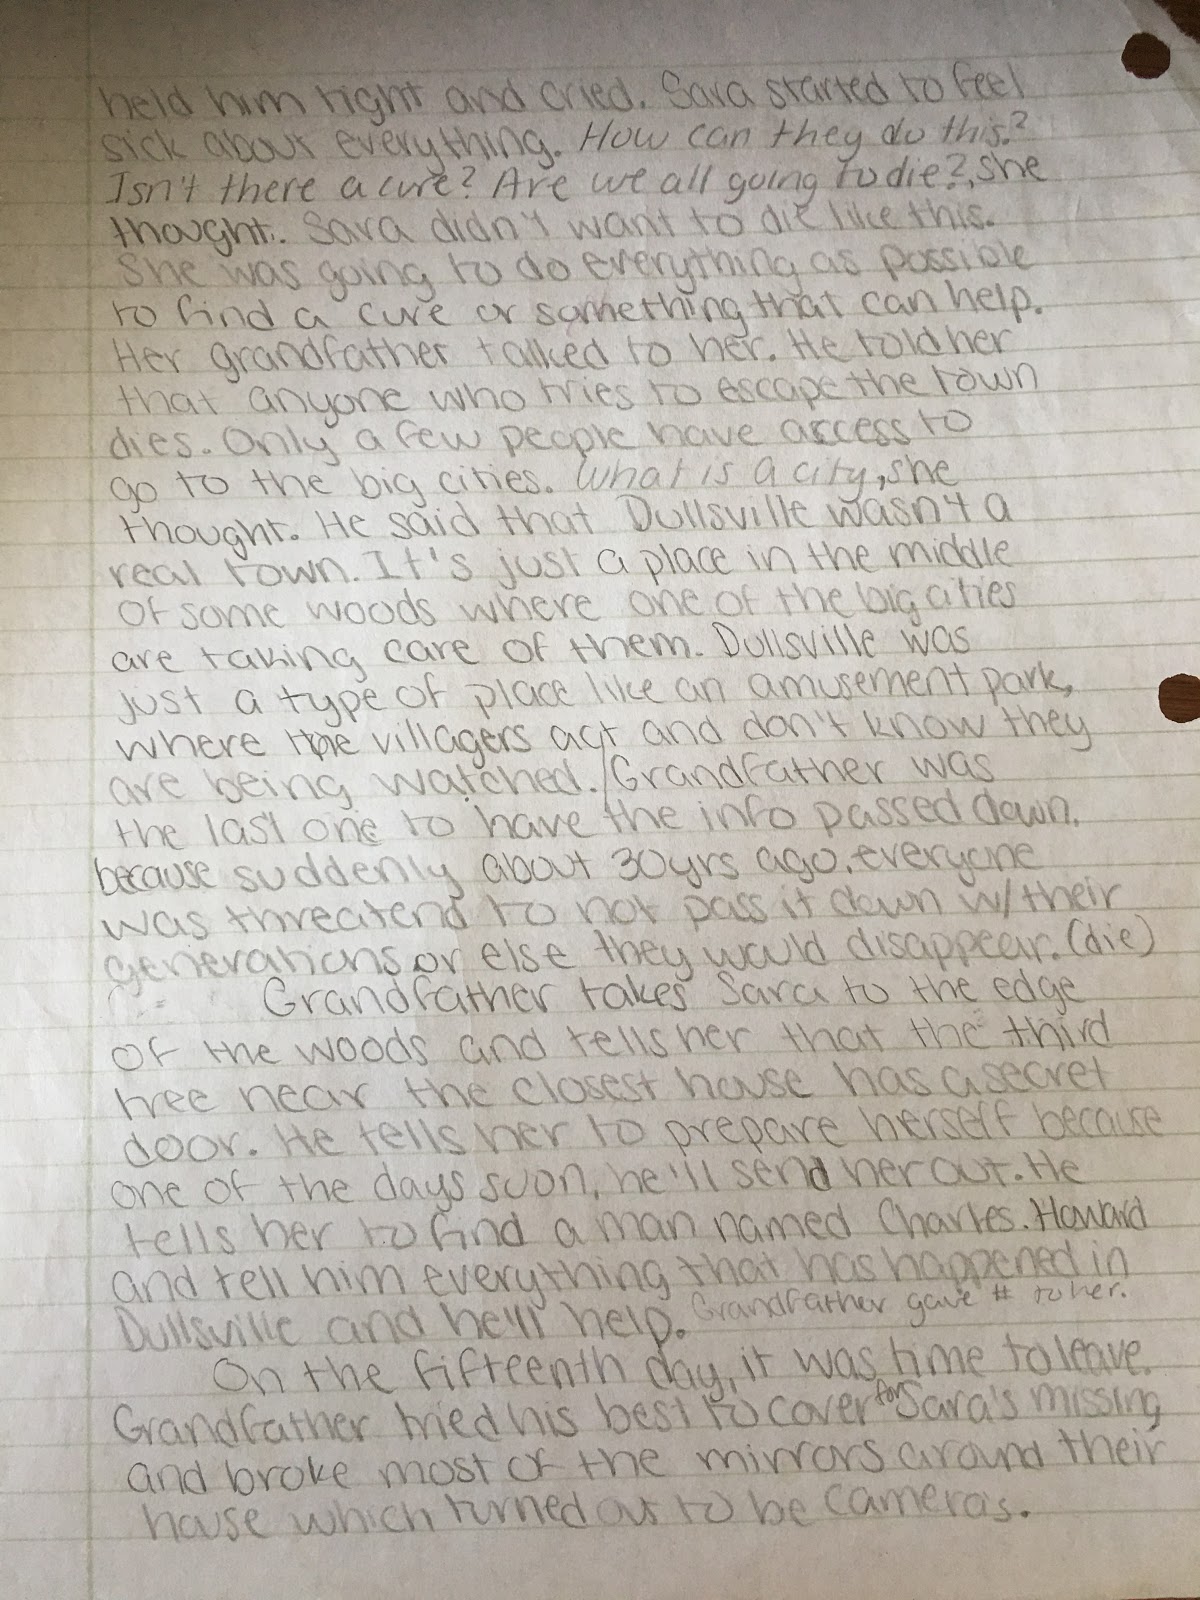 held him tight and cried. Sara started to feel
sick about everything. How can they do this?
Isn't there a cure? Are we all going to die?, she
thought. Sara didn't want to die like this.
She was going to do everything as possible
to find a cure or something that can help.
Her grandfather talked to her. He told her
that anyone who tries to escape the town
dies. Only a few people have access to
go to the big cities. What is a city, she
thought. He said that Dullsville wasn't a
real town. It's just a place in the middle
of some woods where one of the big cities
are taking care of them. Dullsville was
just a type of place like an amusement park,
where the villagers act and don't know they
are being watched. / Grandfather was
the last one to have the info passed down,
because suddenly about 30yrs ago, everyone
was threatend to not pass it down w/ their
generations or else they would disappear. (die)
Grandfather takes Sara to the edge
of the woods and tells her that the third
tree near the closest house has a secret
door. He tells her to prepare herself because
one of the days soon, he'll send her out. He
tells her to find a man named Charles. Howard
and tell him everything that has happened in
Dullsville and he'll help. Grandfather gave # to her.
On the fifteenth day, it was time to leave.
Grandfather tried his best to cover for Sara's missing
and broke most of the mirrors around their
house which turned out to be cameras.